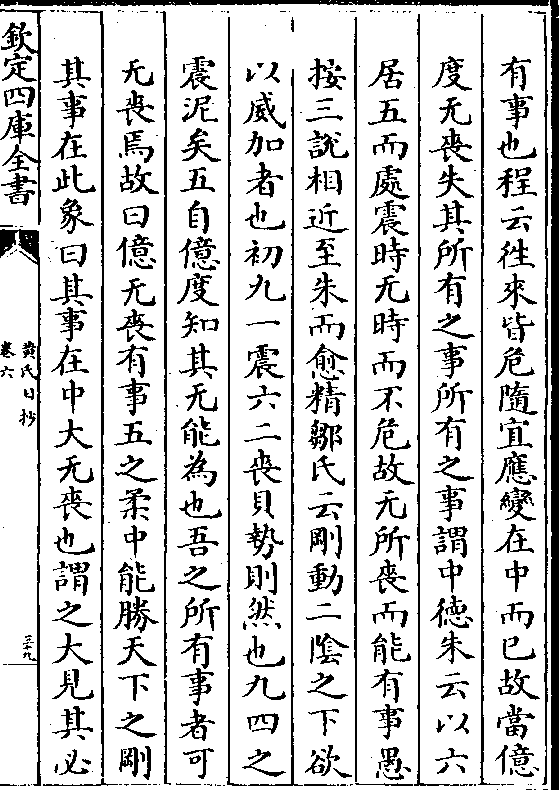 有事也程云徃來皆危隨宜應變在中而已故當億
度无喪失其所有之事所有之事謂中徳朱云以六
居五而處震時无時而不危故无所喪而能有事愚
按三說相近至朱而愈精鄒氏云剛動二隂之下欲
以威加者也初九一震六二喪貝勢則然也九四之
震泥矣五自億度知其无能為也吾之所有事者可
无喪焉故曰億无喪有事五之柔中能勝天下之剛
其事在此象曰其事在中大无喪也謂之大見其必
欽定四庫全書
黄氏日抄
卷六
三十九